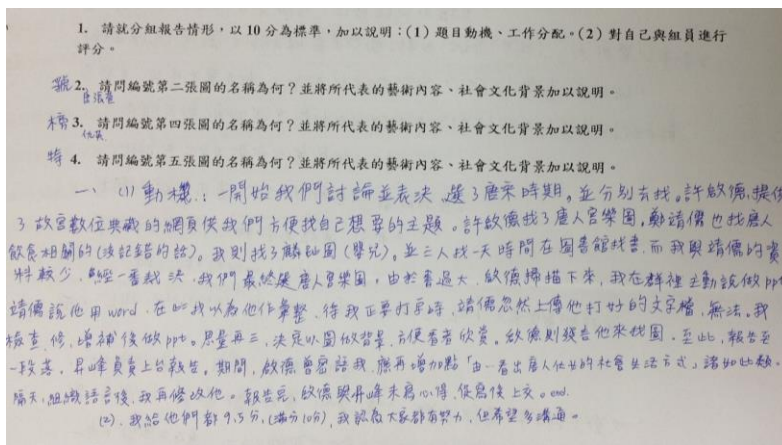 1. 請就分組報告情形，以 10 分為標準，加以說明：(1) 題目動機、工作分配。(2) 對自己與組員進行
評分。
2. 請問編號第二張圖的名稱為何？並將所代表的藝術內容、社會文化背景加以說明。
3. 請問編號第四張圖的名稱為何？並將所代表的藝術內容、社會文化背景加以說明。
特 4. 請問編號第五張圖的名稱為何？並將所代表的藝術內容、社會文化背景加以說明。
一、(1) 動機：一開始我們討論並表決，選了唐宋時期。並分別去找。許啟德提供
了故宮數位典藏的網頁供我們方便找自己想要的主題。許啟德找了唐人宮樂圖，鄭靖儒也找唐人
飲食相關的(沒記錯的話)。我則找了 圖(嬰兒)。並三人找一天時間在圖書館找書，而我與靖儒的資
料較少，經一番裁決，我們最終選唐人宮樂圖，由於書過大，啟德掃描下來，我在群裡主動說做ppt
靖儒說他用word，在此我以為他作彙整，待我正要打字時，靖儒忽然上傳他打好的文字檔，無法。我
檢查、修、增補後做ppt。思量再三，決定以圖做背景，方便看者欣賞。啟德則報告他來找圖，至此，報告至
一段落，昇峰負責上台報告。期間，啟德曾密語我，應再增加點「由 看出唐人仕女的社會生活方式」諸如此類。
隔天，組織語言後，我再修改他。報告完，啟德與昇峰未寫心得，促寫後上交。end.
(2). 我給他們都 9.5 分，(滿分10分)，我認為大家都有努力，但希望多溝通。